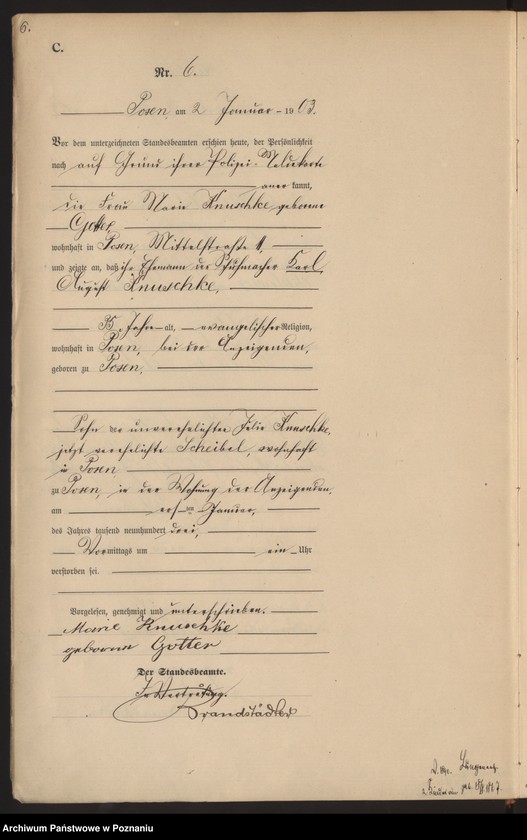 6.
C.
Nr. 6.
Posen, am 2 Januar 1903.
Vor dem unterzeichneten Standesbeamten erschien heute, der Persönlichkeit
nach auf Grund ihrer Polizei-Meldekarte
anerkannt,
die Frau Marie Knuschke geborene
Gotter,
wohnhaft in Posen, Mittelstraße
und zeigte an, daß ihr Ehemann der Schuhmacher Karl
August Knuschke,
35 Jahre alt, evangelischer Religion,
wohnhaft in Posen, bei der Anzeigenden,
geboren zu Posen,
Sohn der unverehelichten Knuschke,
jetzt verehelichte Scheibel, wohnhaft
in Posen
zu Posen, in der Wohnung der Anzeigenden,
am ersten Januar,
des Jahres tausend neunhundert drei,
Vormittags um ein Uhr
verstorben sei.
Vorgelesen, genehmigt und unterschrieben.
Marie Knuschke
geborene Gotter
Der Standesbeamte.
In Vertretung.
Brandstädter
Archiwum Państwowe w Poznaniu